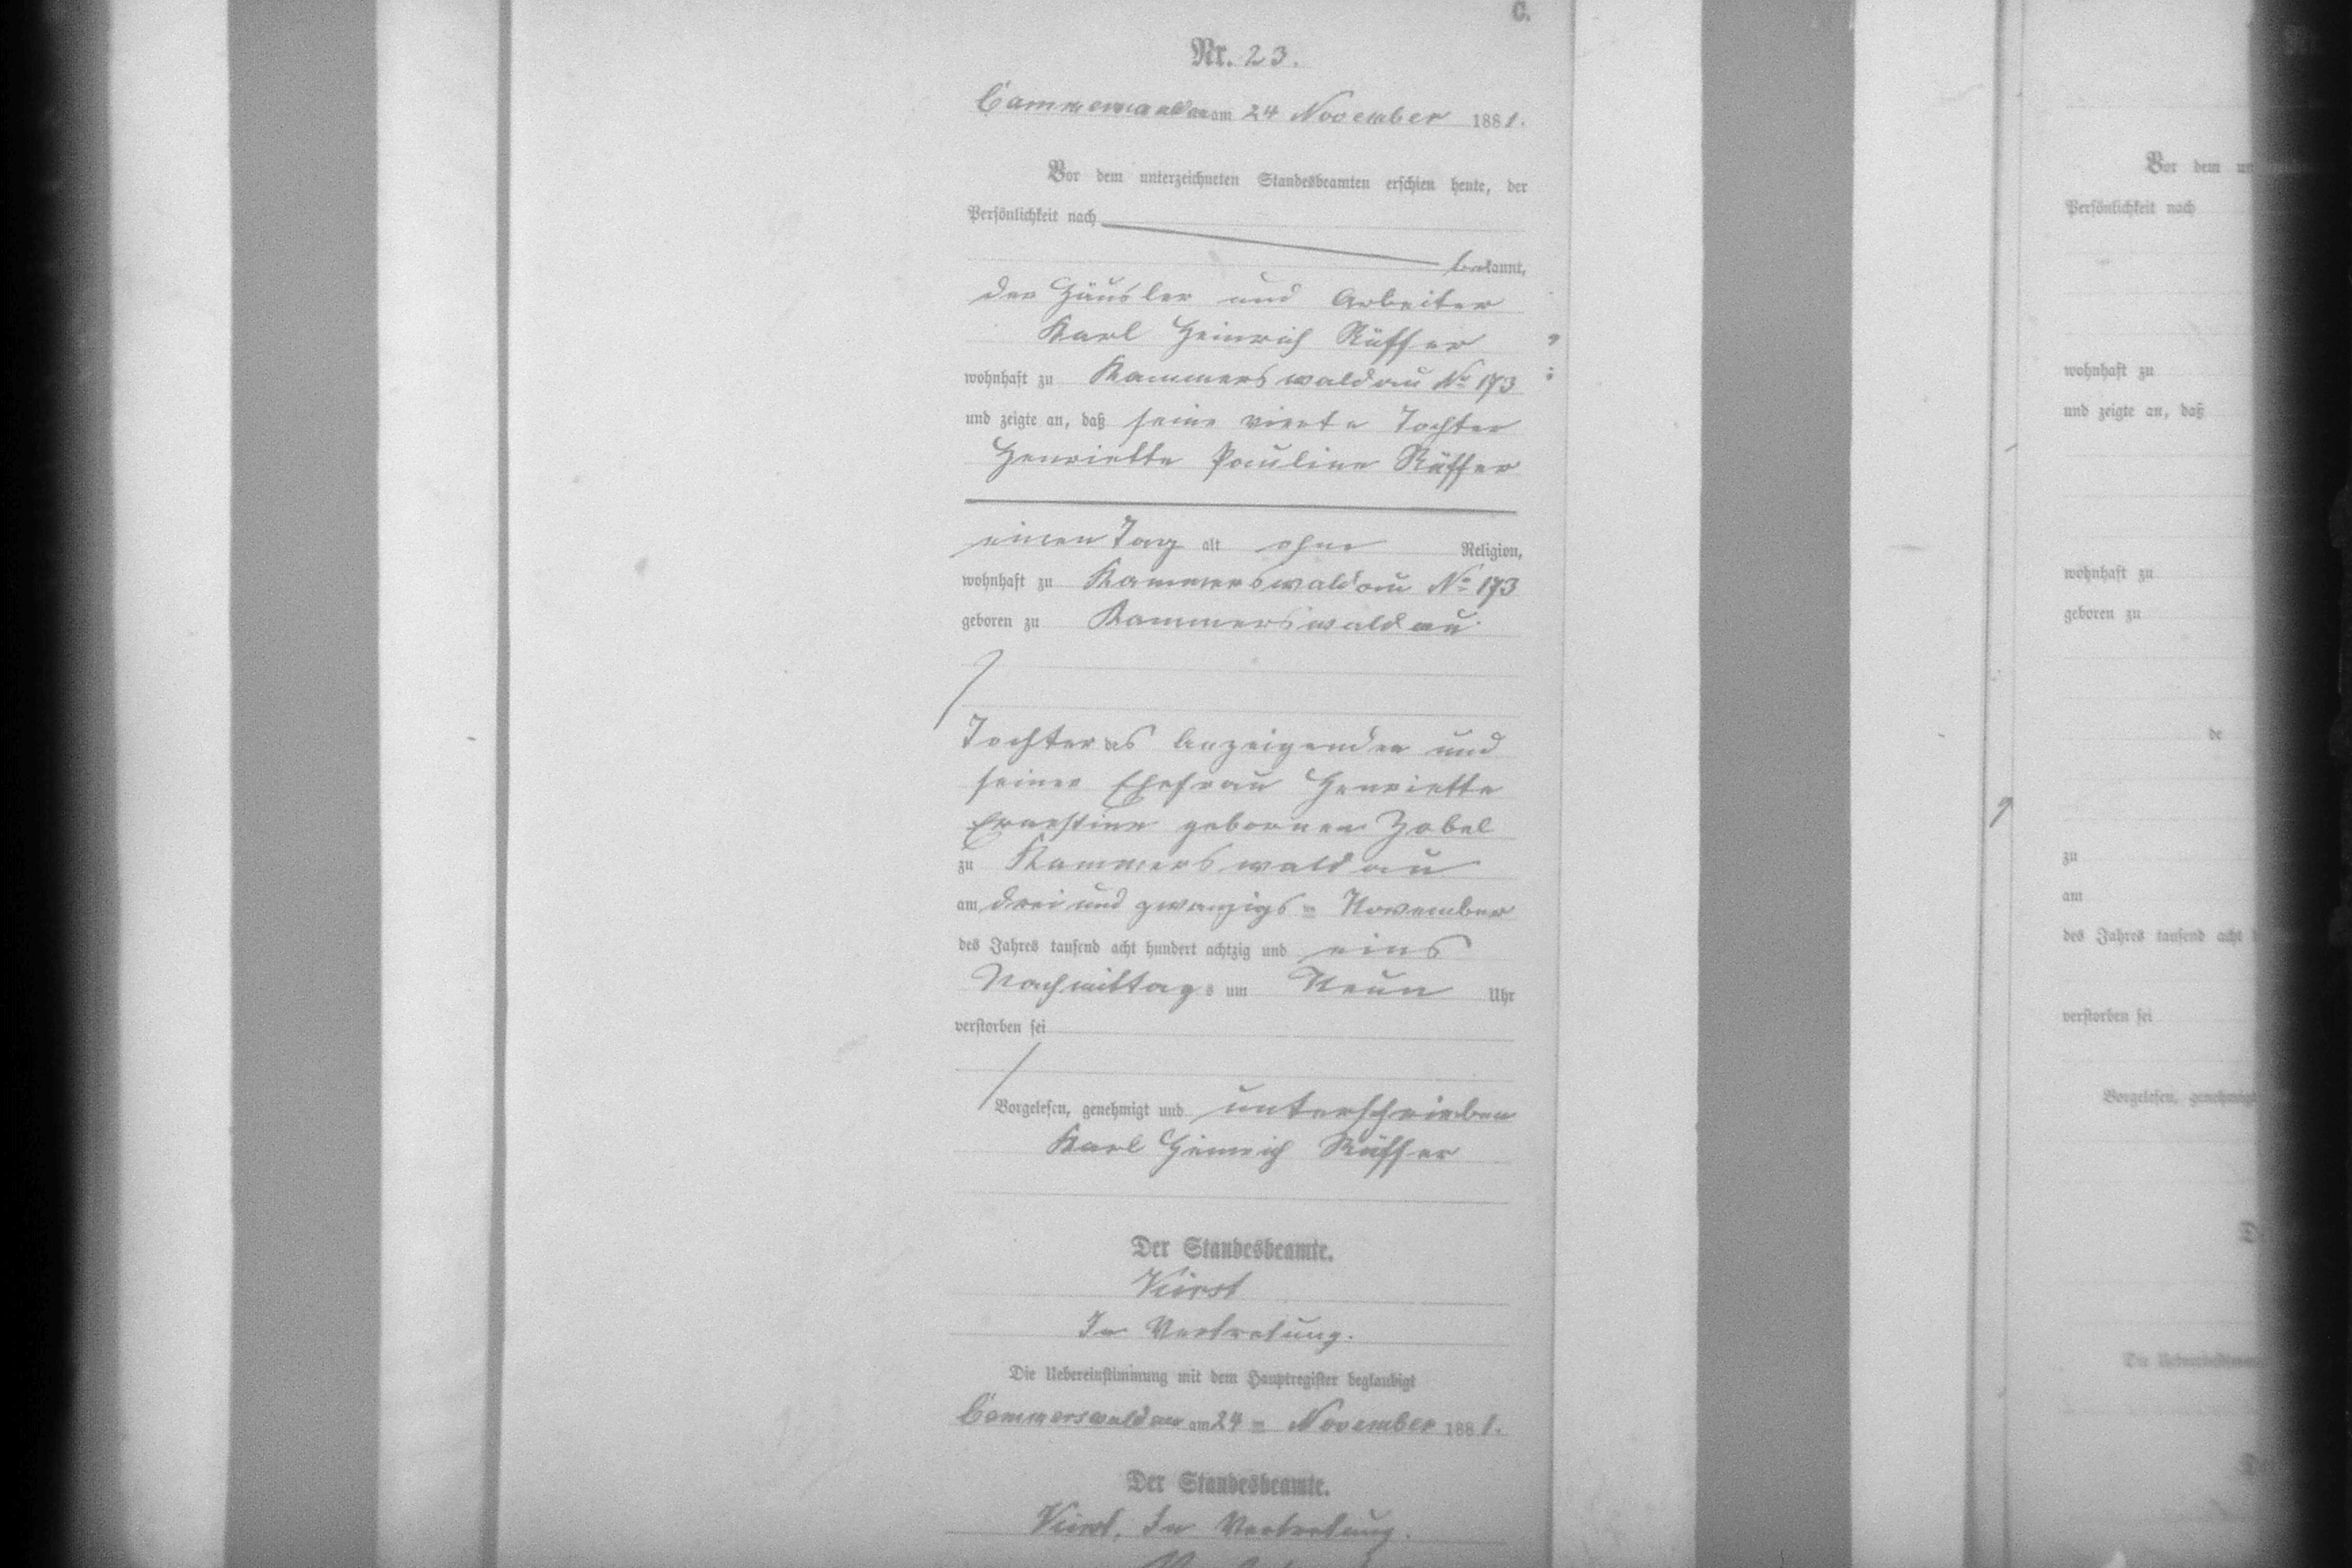 C.
Nr. 23.
Cammerswaldau am 24 November 1881.
Vor dem unterzeichneten Standesbeamten erschien heute, der
Persönlichkeit nach
bekannt,
der Häusler und Arbeiter
Karl Heinrich Rüffer
wohnhaft zu Kammerswaldau No 173
und zeigte an, daß seine vierte Tochter
Henriette Pauline Rüffer
einen Tag alt ohne Religion,
wohnhaft zu Kammerswaldau No 173
geboren zu Kammerswaldau
Tochter des Anzeigenden und
seiner Ehefrau Henriette
Ernestine gebornen Zobel
zu Kammerswaldau
am drei und zwanzigs= November
des Jahres tausend acht hundert achtzig und eins
Nachmittags um Neun Uhr
verstorben sei
Vorgelesen, genehmigt und unterschrieben
Karl Heinrich Rüffer
Der Standesbeamte.
In Vertretung.
Die Uebereinstimmung mit dem Hauptregister beglaubigt
Cammerswaldau am 24 = November 1881.
Der Standesbeamte.
In Vertretung.
Vor dem
Persönlichkeit nach
wohnhaft zu
und zeigte an, daß
wohnhaft zu
geboren zu
de
zu
am
des Jahres tausend acht
verstorben sei
Vorgelesen, genehmigt